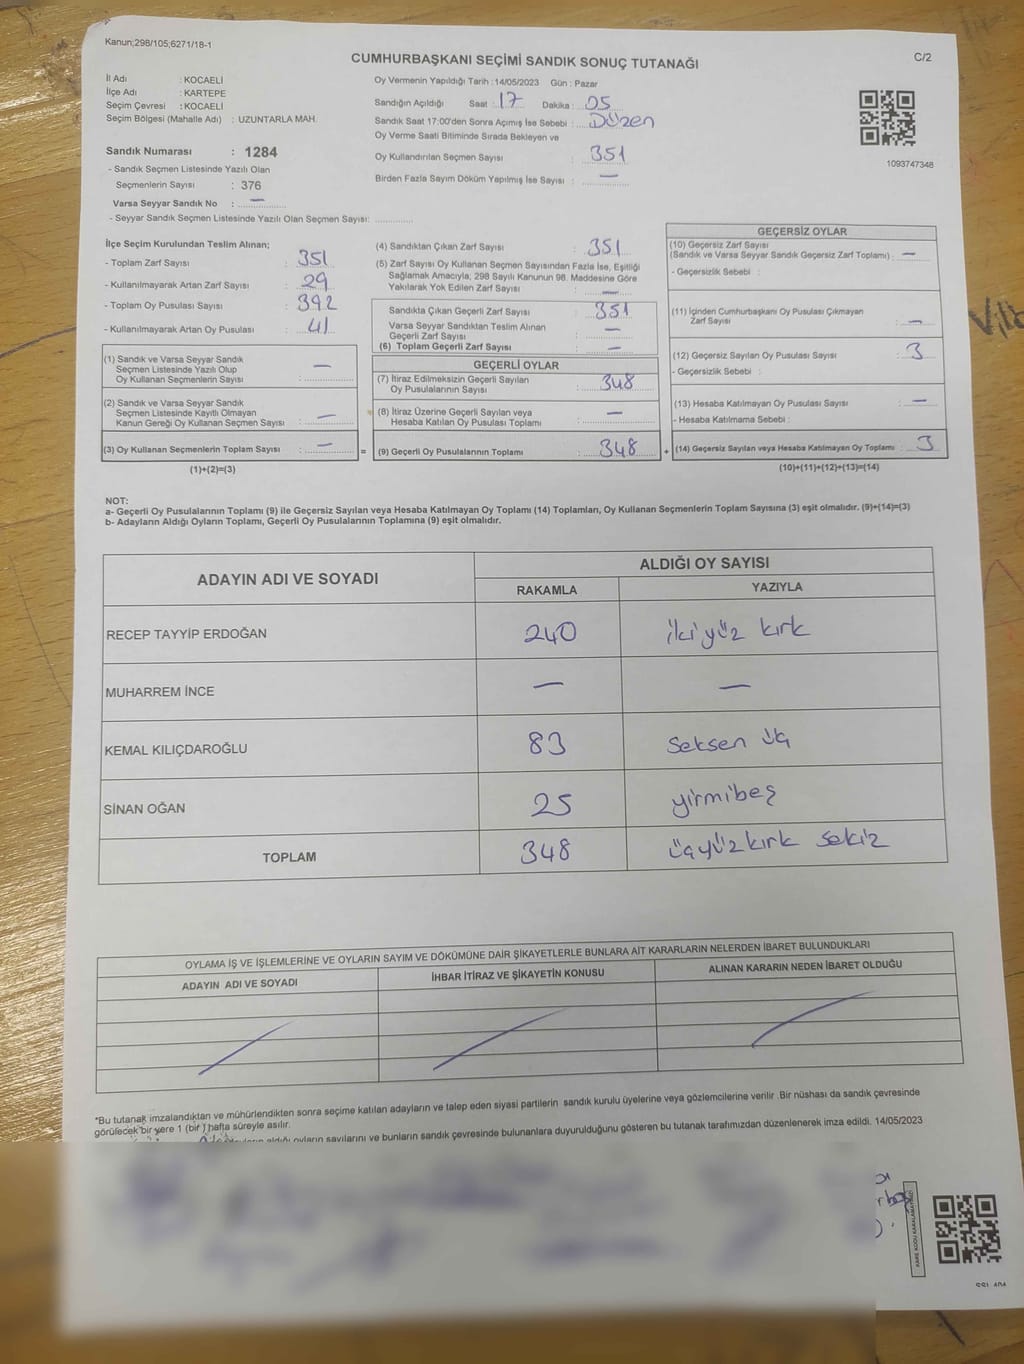 Kanun;298/105;6271/18-1
C/2
CUMHURBAŞKANI SEÇİMİ SANDIK SONUÇ TUTANAĞI
İl Adı : KOCAELİ
İlçe Adı : KARTEPE
Seçim Çevresi : KOCAELİ
Seçim Bölgesi (Mahalle Adı) : UZUNTARLA MAH.
Sandık Numarası : 1284
- Sandık Seçmen Listesinde Yazılı Olan
Seçmenlerin Sayısı : 376
Varsa Seyyar Sandık No : —
- Seyyar Sandık Seçmen Listesinde Yazılı Olan Seçmen Sayısı:
Oy Vermenin Yapıldığı Tarih : 14/05/2023 Gün : Pazar
Sandığın Açıldığı Saat : 17 Dakika : 05
Sandık Saat 17:00'den Sonra Açımış İse Sebebi : Düzen
Oy Verme Saati Bitiminde Sırada Bekleyen ve
Oy Kullandırılan Seçmen Sayısı : 351
Birden Fazla Sayım Döküm Yapılmış İse Sayısı : —
1093747348
İlçe Seçim Kurulundan Teslim Alınan;
- Toplam Zarf Sayısı : 351
- Kullanılmayarak Artan Zarf Sayısı : 29
- Toplam Oy Pusulası Sayısı : 392
- Kullanılmayarak Artan Oy Pusulası : 41
(1) Sandık ve Varsa Seyyar Sandık
Seçmen Listesinde Yazılı Olup
Oy Kullanan Seçmenlerin Sayısı : —
(2) Sandık ve Varsa Seyyar Sandık
Seçmen Listesinde Kayıtlı Olmayan
Kanun Gereği Oy Kullanan Seçmen Sayısı : —
(3) Oy Kullanan Seçmenlerin Toplam Sayısı : —
(1)+(2)=(3)
(4) Sandıktan Çıkan Zarf Sayısı : 351
(5) Zarf Sayısı Oy Kullanan Seçmen Sayısından Fazla İse, Eşitliği
Sağlamak Amacıyla; 298 Sayılı Kanunun 98. Maddesine Göre
Yakılarak Yok Edilen Zarf Sayısı : —
Sandıkta Çıkan Geçerli Zarf Sayısı : 351
Varsa Seyyar Sandıktan Teslim Alınan
Geçerli Zarf Sayısı : —
(6) Toplam Geçerli Zarf Sayısı : —
GEÇERLİ OYLAR
(7) İtiraz Edilmeksizin Geçerli Sayılan
Oy Pusulalarının Sayısı : 348
(8) İtiraz Üzerine Geçerli Sayılan veya
Hesaba Katılan Oy Pusulası Toplamı : —
= (9) Geçerli Oy Pusulalarının Toplamı : 348 +
GEÇERSİZ OYLAR
(10) Geçersiz Zarf Sayısı
(Sandık ve Varsa Seyyar Sandık Geçersiz Zarf Toplamı) : —
- Geçersizlik Sebebi :
(11) İçinden Cumhurbaşkanı Oy Pusulası Çıkmayan
Zarf Sayısı : —
(12) Geçersiz Sayılan Oy Pusulası Sayısı : 3
- Geçersizlik Sebebi :
(13) Hesaba Katılmayan Oy Pusulası Sayısı : —
- Hesaba Katılmama Sebebi :
(14) Geçersiz Sayılan veya Hesaba Katılmayan Oy Toplamı : 3
(10)+(11)+(12)+(13)=(14)
NOT:
a- Geçerli Oy Pusulalarının Toplamı (9) ile Geçersiz Sayılan veya Hesaba Katılmayan Oy Toplamı (14) Toplamları, Oy Kullanan Seçmenlerin Toplam Sayısına (3) eşit olmalıdır. (9)+(14)=(3)
b- Adayların Aldığı Oyların Toplamı, Geçerli Oy Pusulalarının Toplamına (9) eşit olmalıdır.
ADAYIN ADI VE SOYADI ALDIĞI OY SAYISI
RAKAMLA YAZIYLA
RECEP TAYYİP ERDOĞAN 240 iki yüz kırk
MUHARREM İNCE — —
KEMAL KILIÇDAROĞLU 83 Seksen üç
SİNAN OĞAN 25 yirmibeş
TOPLAM 348 üçyüzkırk sekiz
OYLAMA İŞ VE İŞLEMLERİNE VE OYLARIN SAYIM VE DÖKÜMÜNE DAİR ŞİKAYETLERLE BUNLARA AİT KARARLARIN NELERDEN İBARET BULUNDUKLARI
ADAYIN ADI VE SOYADI İHBAR İTİRAZ VE ŞİKAYETİN KONUSU ALINAN KARARIN NEDEN İBARET OLDUĞU
*Bu tutanak imzalandıktan ve mühürlendikten sonra seçime katılan adayların ve talep eden siyasi partilerin sandık kurulu üyelerine veya gözlemcilerine verilir .Bir nüshası da sandık çevresinde
görülecek bir yere 1 (bir ) hafta süreyle asılır.
aldığı oyların sayılarını ve bunların sandık çevresinde bulunanlara duyurulduğunu gösteren bu tutanak tarafımızdan düzenlenerek imza edildi. 14/05/2023
KARE KODU KARALAMAYINIZ